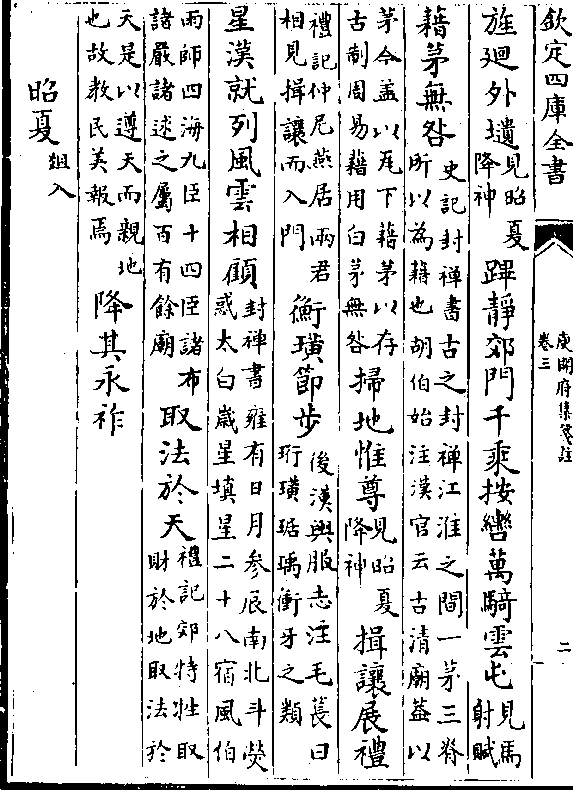 欽定四庫全書
庾開府集箋註
卷三
二
旌廻外壝見昭夏降神蹕靜郊門千乘按轡萬騎雲屯見馬射賦
藉茅無咎史記封禪書古之封禪江淮之間一茅三脊所以為藉也胡伯始注漢官云古清廟蓋以
茅今蓋以瓦下藉茅以存古制周易藉用白茅無咎掃地惟尊見昭夏降神揖讓展禮
禮記仲尼燕居兩君相見揖讓而入門衡璜節步後漢輿服志注毛萇曰珩璜琚瑀衝牙之類
星漢就列風雲相顧封禪書雍有日月參辰南北斗熒惑太白歲星填星二十八宿風伯
雨師四海九臣十四臣諸布諸嚴諸述之屬百有餘廟取法於天禮記郊特牲取財於地取法於
天是以遵天而親地也故教民美報焉降其永祚
昭夏俎入